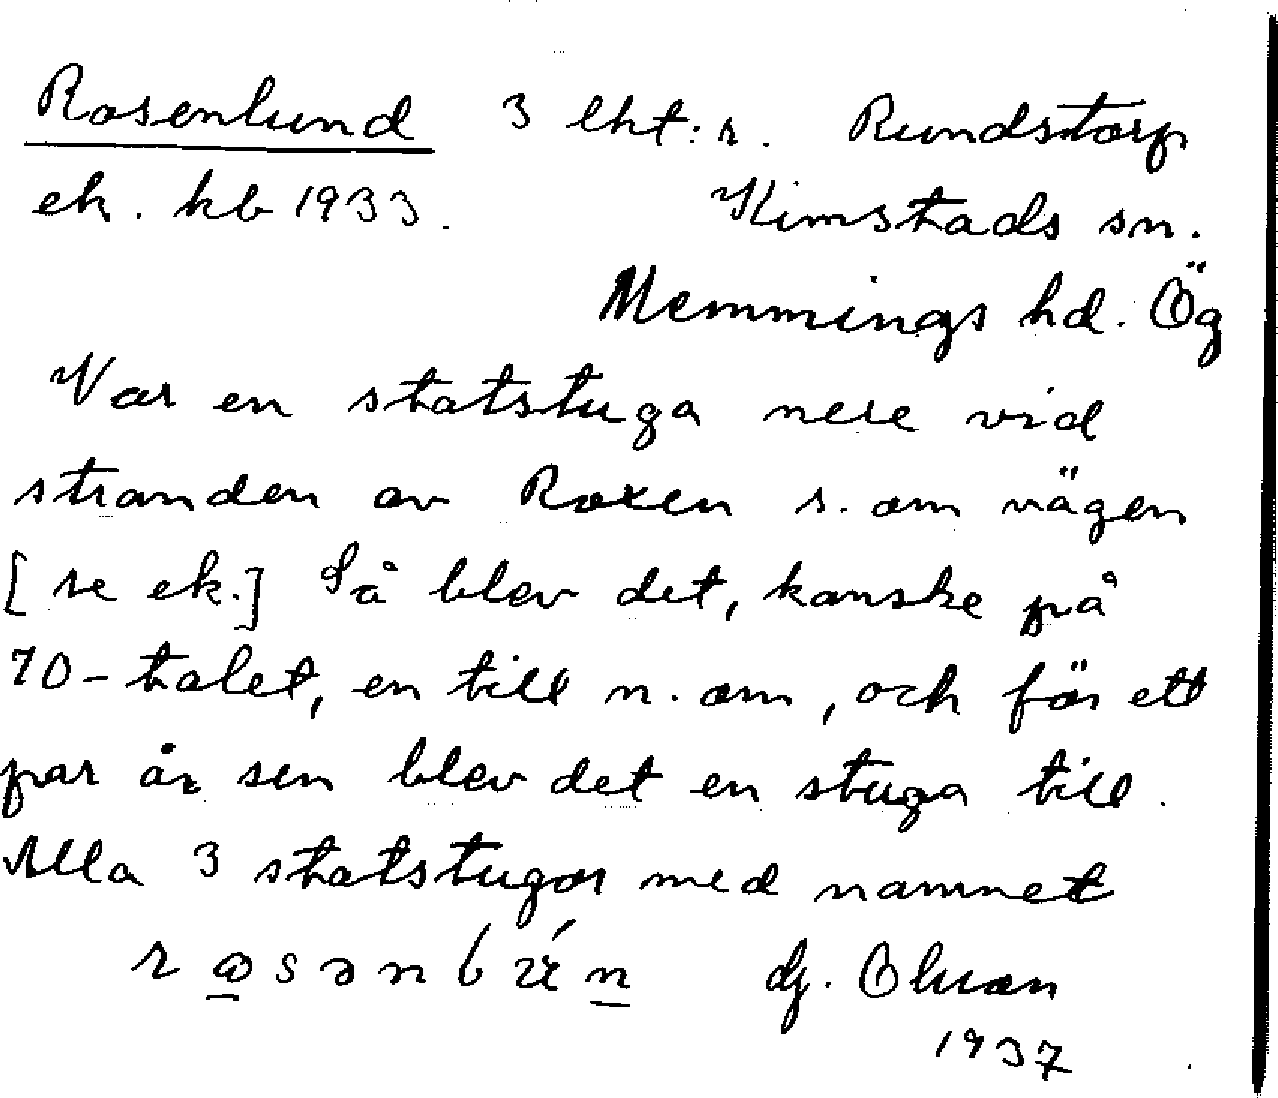 Rosenlund 3 lht:r. Rundstorp
ek. hb 1933. Kimstads sn.
Memmings hd. Ög
Var en statstuga nere vid
stranden av Roxen s. om vägen
[se ek.] Så blev det, kanske på
70-talet, en till n. om, och för ett
par år sen blev det en stuga till.
Alla 3 statstugor med namnet
dj. Olsson
1937